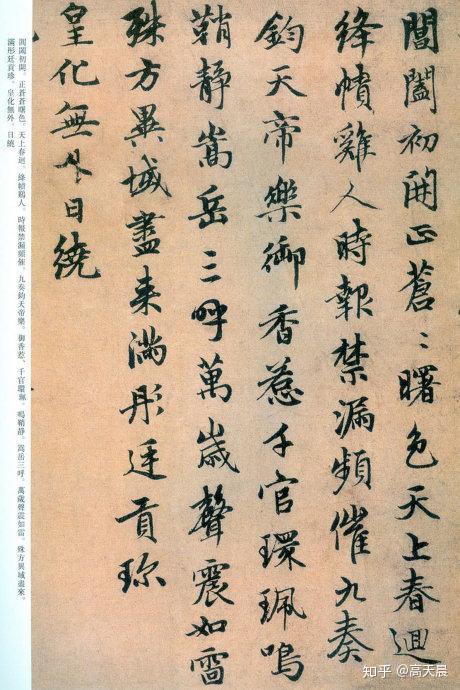 閶闔初開正蒼〻曙色天上春迴
絳幘雞人時報禁漏頻催九奏
鈞天帝樂御香惹千官環珮鳴
鞘静嵩岳三呼萬歲聲震如雷
殊方異域盡來滿彤廷貢珎
皇化無外日繞
閶闔初開。正蒼蒼曙色。天上春迴。絳幘鷄人。時報禁漏頻催。九奏鈞天帝樂。御香惹、千官環珮。鳴鞘静。嵩岳三呼。萬歲聲震如雷。殊方異域盡來。
滿彤廷貢珍。皇化無外。日繞
知乎 @高天晨